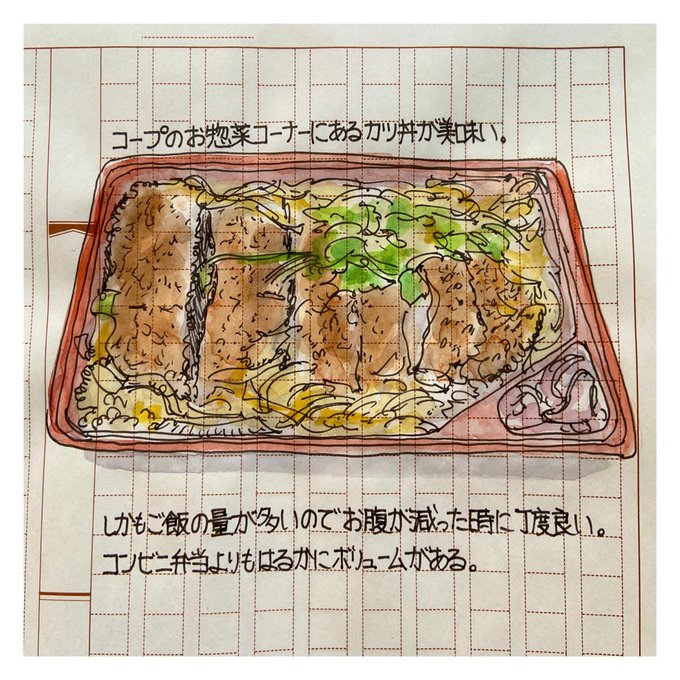 コープのお惣菜コーナーにあるカツ丼が美味い。
しかもご飯の量が多いのでお腹が減った時に丁度良い。
コンビニ弁当よりもはるかにボリュームがある。